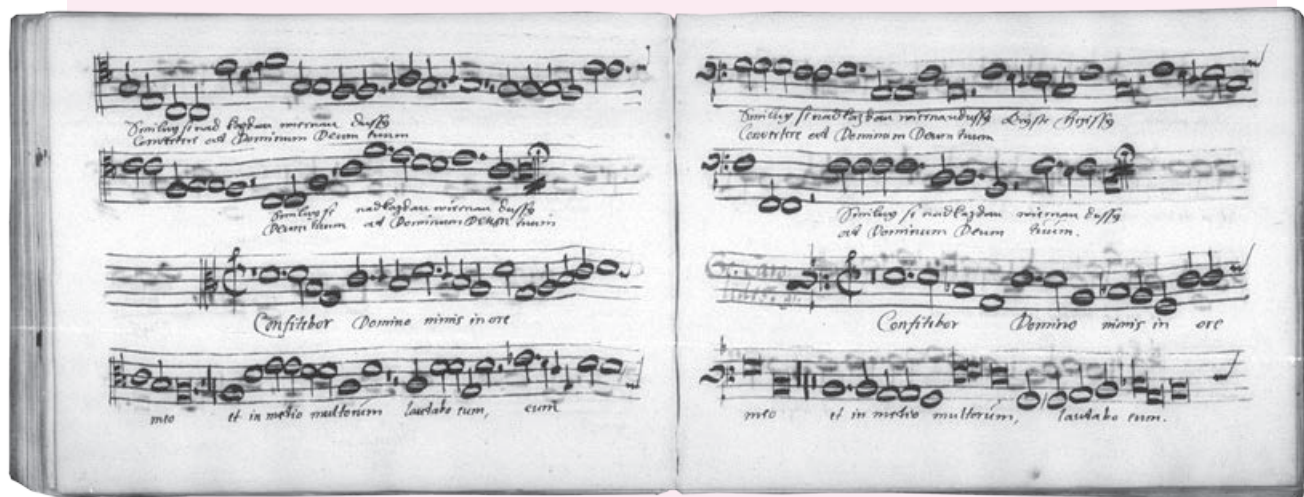 Smilug se nad kazdau wiernau dussy
Convertere ad Dominum Deum tuum
Smilug se nad kazdau wiernau dussy
Deum tuum ad Dominum Deum tuum
Confitebor Domino nimis in ore
meo et in medio multorum laudabo eum, eum
Smilug se nad kazdau wiernau dussy
Convertere ad Dominum Deum tuum
Smilug se nad kazdau wiernau dussy
ad Dominum Deum tuum.
Confitebor Domino nimis in ore
meo et in medio multorum, laudabo eum.